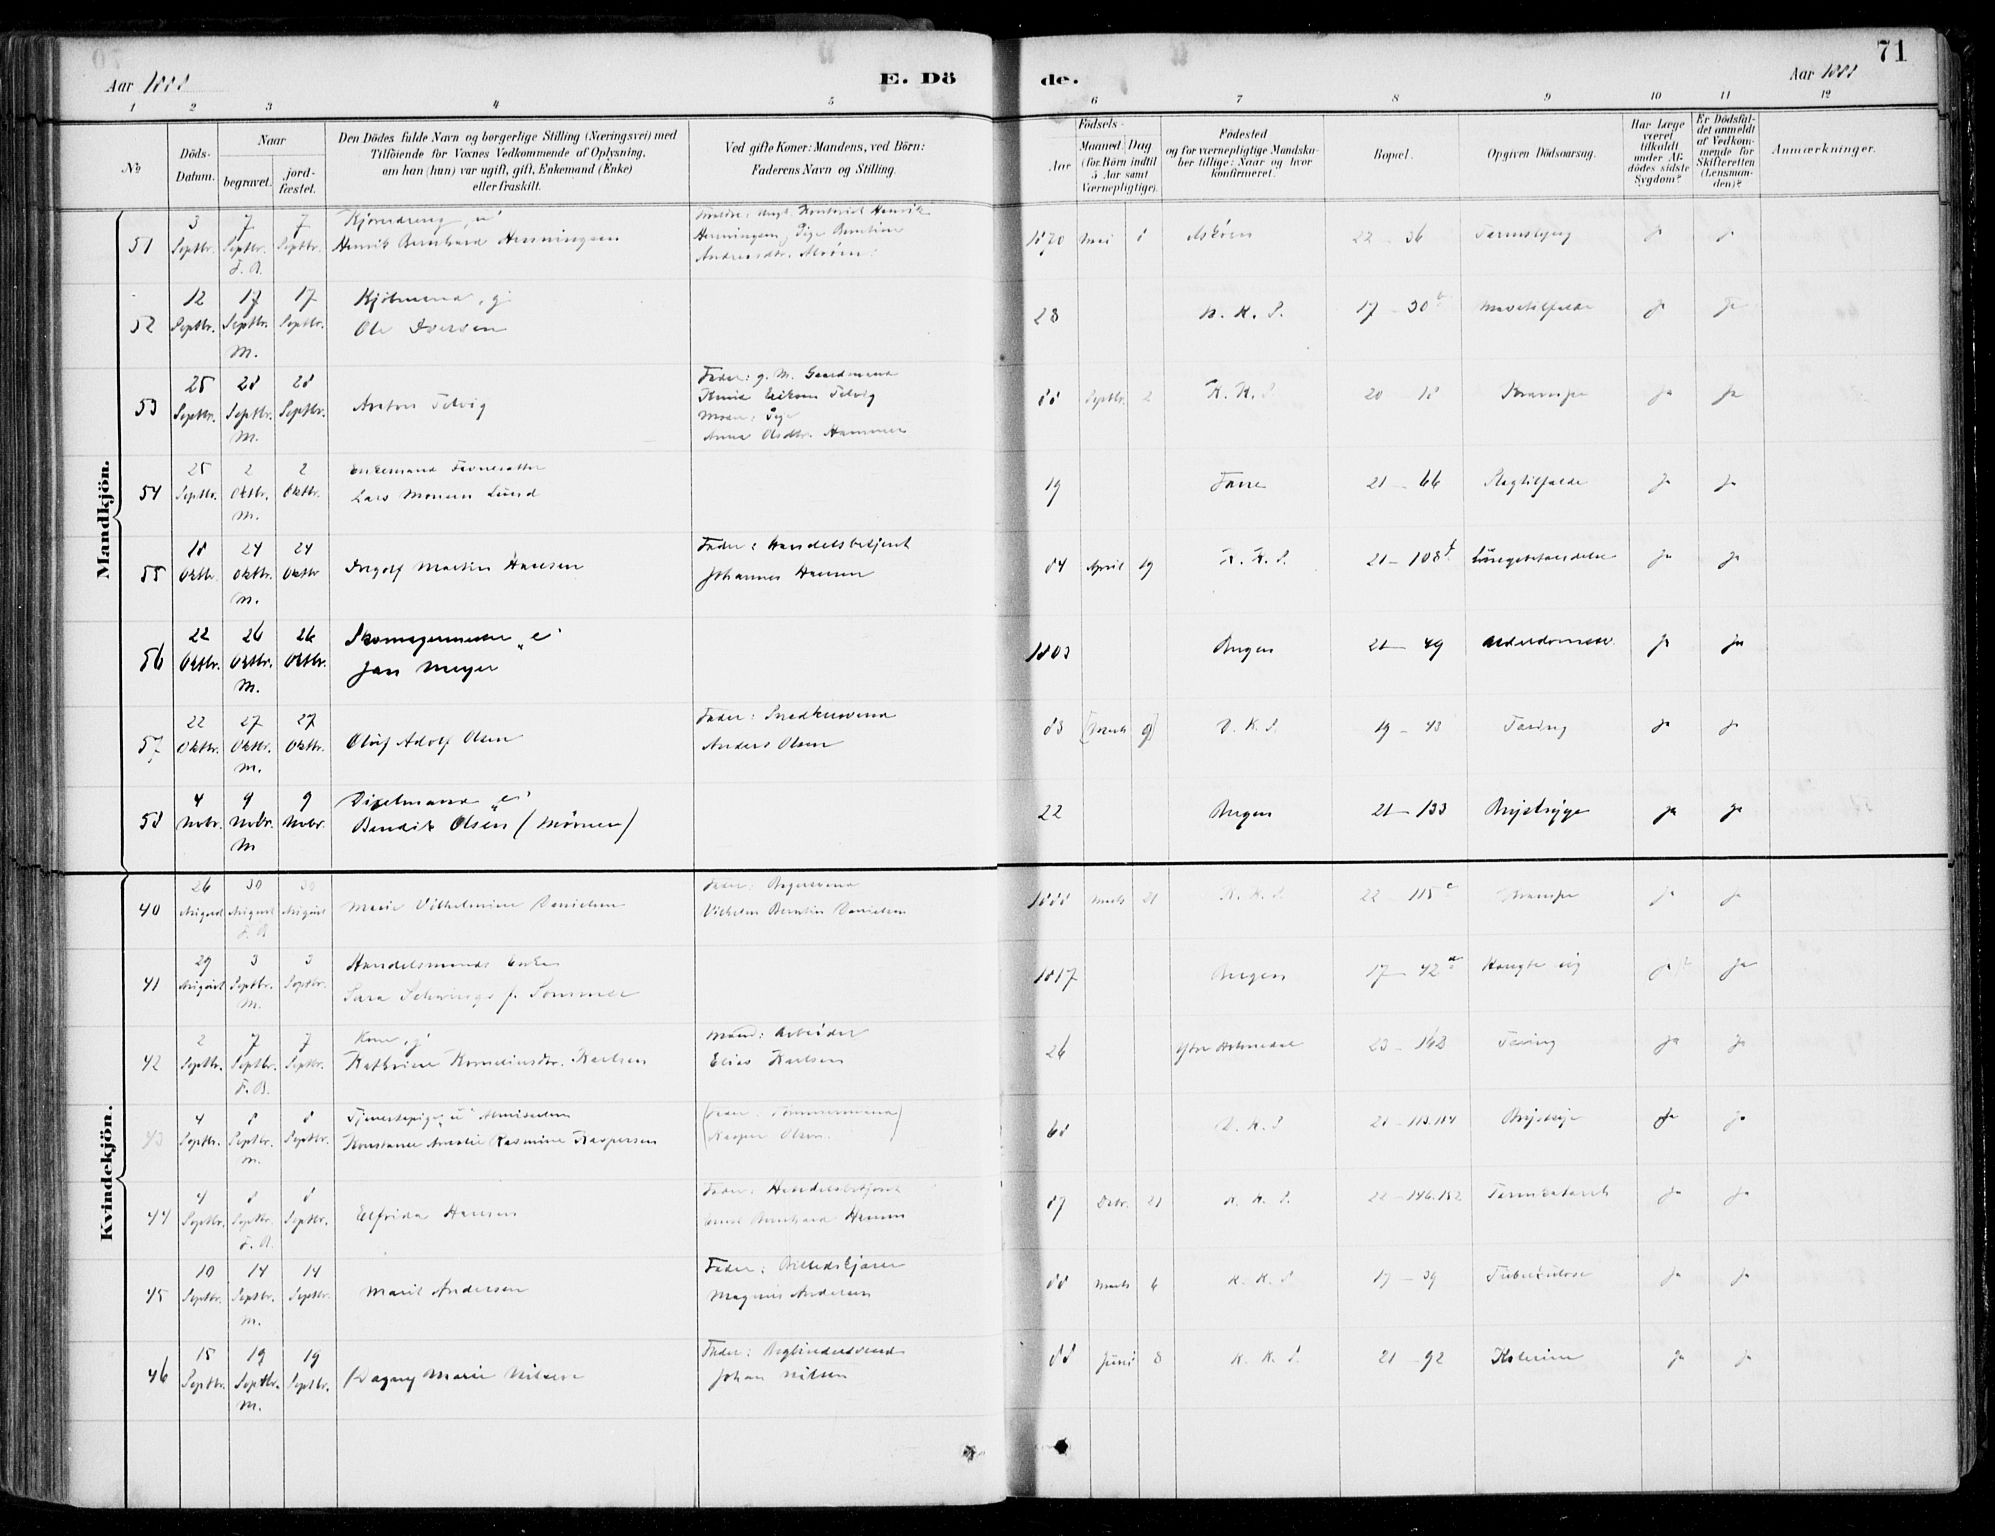 71
Aar 1888
E. Dö
de.
Aar 1888
1 2 3 4 5 6 7 8 9 10 11 12
No
Döds-Datum.
Naar
begravet.
jord-fæstet.
Den Dödes fulde Navn og borgerlige Stilling (Næringsvei) med
Tilföiende for Voxnes Vedkommende af Oplysning,
om han (hun) var ugift, gift, Enkemand (Enke)
eller fraskilt.
Ved gifte Koner: Mandens, ved Börn:
Faderens Navn og Stilling.
Födsels-
Aar
Maaned. Dag
(for Börn indtil
5 Aar samt
Værnepligtige).
Födested
og for værnepligtige Mandska-
ber tillige: Naar og hvor
konfirmeret.
Bopæl.
Opgiven Dödsaarsag.
Har Læge
været
tilkaldt
under Af-
dödes sidste
Sygdom?
Er Dödsfal-
det anmeldt
af Vedkom-
mende for
Skifteretten
(Lensman-
den)?
Anmærkninger.
Mandkjön.
51 3 Septbr. 7 Septbr. 7 Septbr.
Henrik Bernhard Henningsen
Henningsen, Pige Berntine
1870 Mai 8 Askøen 22 - 36 ja ja
52 12 Septbr. 17 Septbr. M. 17 Septbr.
Ole Iversen
28 N. K. S. 17 - 30 b Mavetilfælde ja ja
53 25 Septbr. 28 Septbr. M. 28 Septbr.
Anton Telvig
Fader: g. M. Gaardmand
Knud Eriksen Telvig
Moder: Pige
Anna Olsdtr. Hammer
88 Septbr. 2 K. K. S. 20 - 18 Krampe ja ja
54 25 Septbr. 2 Oktbr. M. 2 Oktbr.
Enkemand
Lars Monsen Lund
19 Fane 21 - 66 Slagtilfælde ja ja
55 18 Oktbr. 24 Oktbr. M. 24 Oktbr
Ingolf Martin Hansen
Fader: Handelsbetjent
Johannes Hansen
84 April 19 K. K. S. 21 - 108 Lungebetændelse ja ja
56 22 Oktbr. 26 Oktbr. M. 26 Oktbr.
Skomagermester "e"
Jan Meyer
1803 Bergen 21 - 49 Alderdomssv. ja ja
57 22 Oktbr. 27 Oktbr. M. 27 Oktbr.
Oluf Adolf Olsen
Fader: Snedkersvend
Anders Olsen
83 9 D. K. S. 19 - 43 Tæring ja ja
58 4 Novbr. 9 Novbr. M 9 Novbr.
"e"
Bendik Olsen (Mörner)
22 Bergen 21 - 133 Brystsyge ja ja
Kvindekjön.
40 26 August 30 August 30 August
Marie Vilhelmine Danielsen
Fader: Bagersvend
Vilhelm Berntin Danielsen
1888 Marts 21 D. K. S. 22 - 115 c Krampe ja ja
41 29 August 3 Septbr. M. 3 Septbr.
Handelsmands Enke
Sara f. Sommer
1817 Bergen 17 - 42 Hængte sig ja ja
42 2 Septbr. 7 Septbr. F. B. 7 Septbr.
Kone, g
Kathrine Korneliusdtr. Karlsen
Mand: Arbeider
Elias Karlsen
26 Ytre Holmedal 23 - 162 Tæring ja ja
43 4 Septbr. 8 Septbr. M. 8 Septbr.
Tjenestepige, "u"
Konstance Amalie Rasmine Kaspersen
(Fader: Tömmermand
Kasper Olsen)
68 D. K. S 21 - 113.114 Brystsyge ja ja
44 4 Septbr. 8 Septbr. 8 Septbr.
Elfrida Hansen
Fader: Handelsbetjent
Bernhard Hansen
87 Debr. 21 N. K. S. 22 - 146.152 Tarmkatarrh ja ja
45 10 Septbr. 14 Septbr. M. 14 Septbr.
Marie Andersen
Fader: Billedskjærer
Magnus Andersen
88 Marts 6 K. K. S 17 - 39 Tuberkulose ja ja
46 15 Septbr. 19 Septbr. M. 19 Septbr.
Dagny Marie Nilsen
Fader: Bogbindersvend
Johan Nilsen
88 Juni 8 K. K. S. 21 - 92 Kolerine ja ja